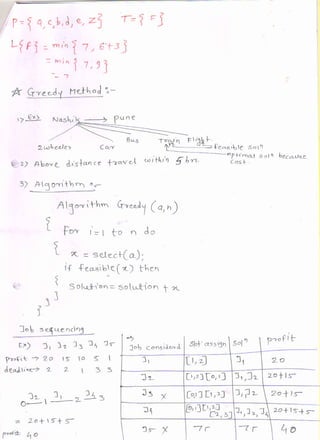 P = { a, c, b, d, e, z }   T = { F }
L{F} = min { 7, 6+3 }
= min { 7, 9 }
= 7
☆ Greedy Method :-
1) Ex) Nashik → pune
2wheeler Car Bus Train Flight
→ Feasible Solⁿ
optimal solⁿ because cost.
2) Above distance travel within 5 hrs.
3) Algorithm :-
Algorithm Greedy (a, n)
{
For i = 1 to n do
{
x = select(a);
if feasible(x) then
{
Solution = solution + x
}
}
}
Job sequencing
Ex) J1 J2 J3 J4 J5
Profit → 20 15 10 5 1
deadline → 2 2 1 3 3
0 J2 1 J1 2 J4 3
= 20+15+5
profit 40
Job considered Slot assign Solⁿ profit
J1 [1,2] J1 20
J2 [1,2] [0,1] J1, J2 20+15
J3 x [0,1] [1,2] J1, J2 20+15
J4 [0,1] [1,2] [2,3] J1, J2, J4 20+15+5
J5 x 40